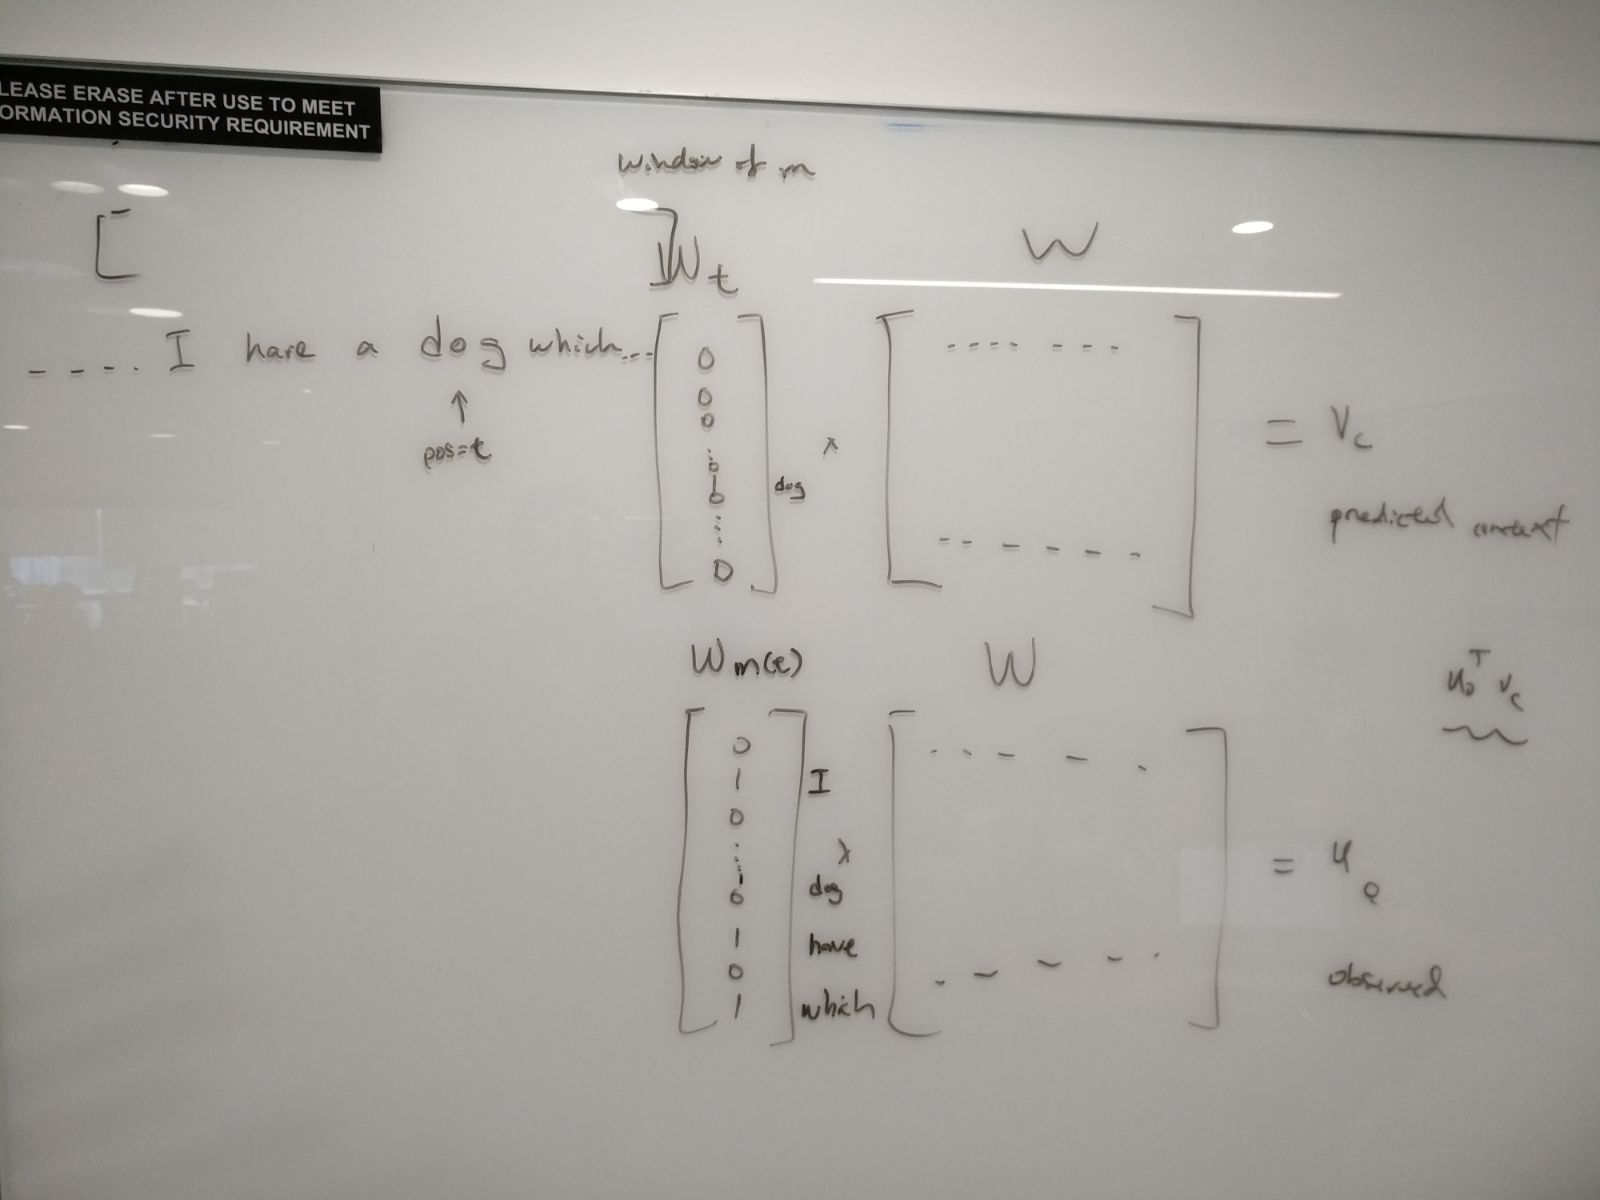 LEASE ERASE AFTER USE TO MEET
ORMATION SECURITY REQUIREMENT
window of m
[ ] W t
W
---- I have a dog which...
↑
pos=t
[ 0 0 0 ... 0 1 0 ... 0 ] dog × [ ....... ------ ] = Vc
predicted context
W m(t)
W
u_o^T v_c
[ 0 1 0 ... 1 0 1 0 1 ] I dog have which × [ ----- ----- ] = u_o
observed